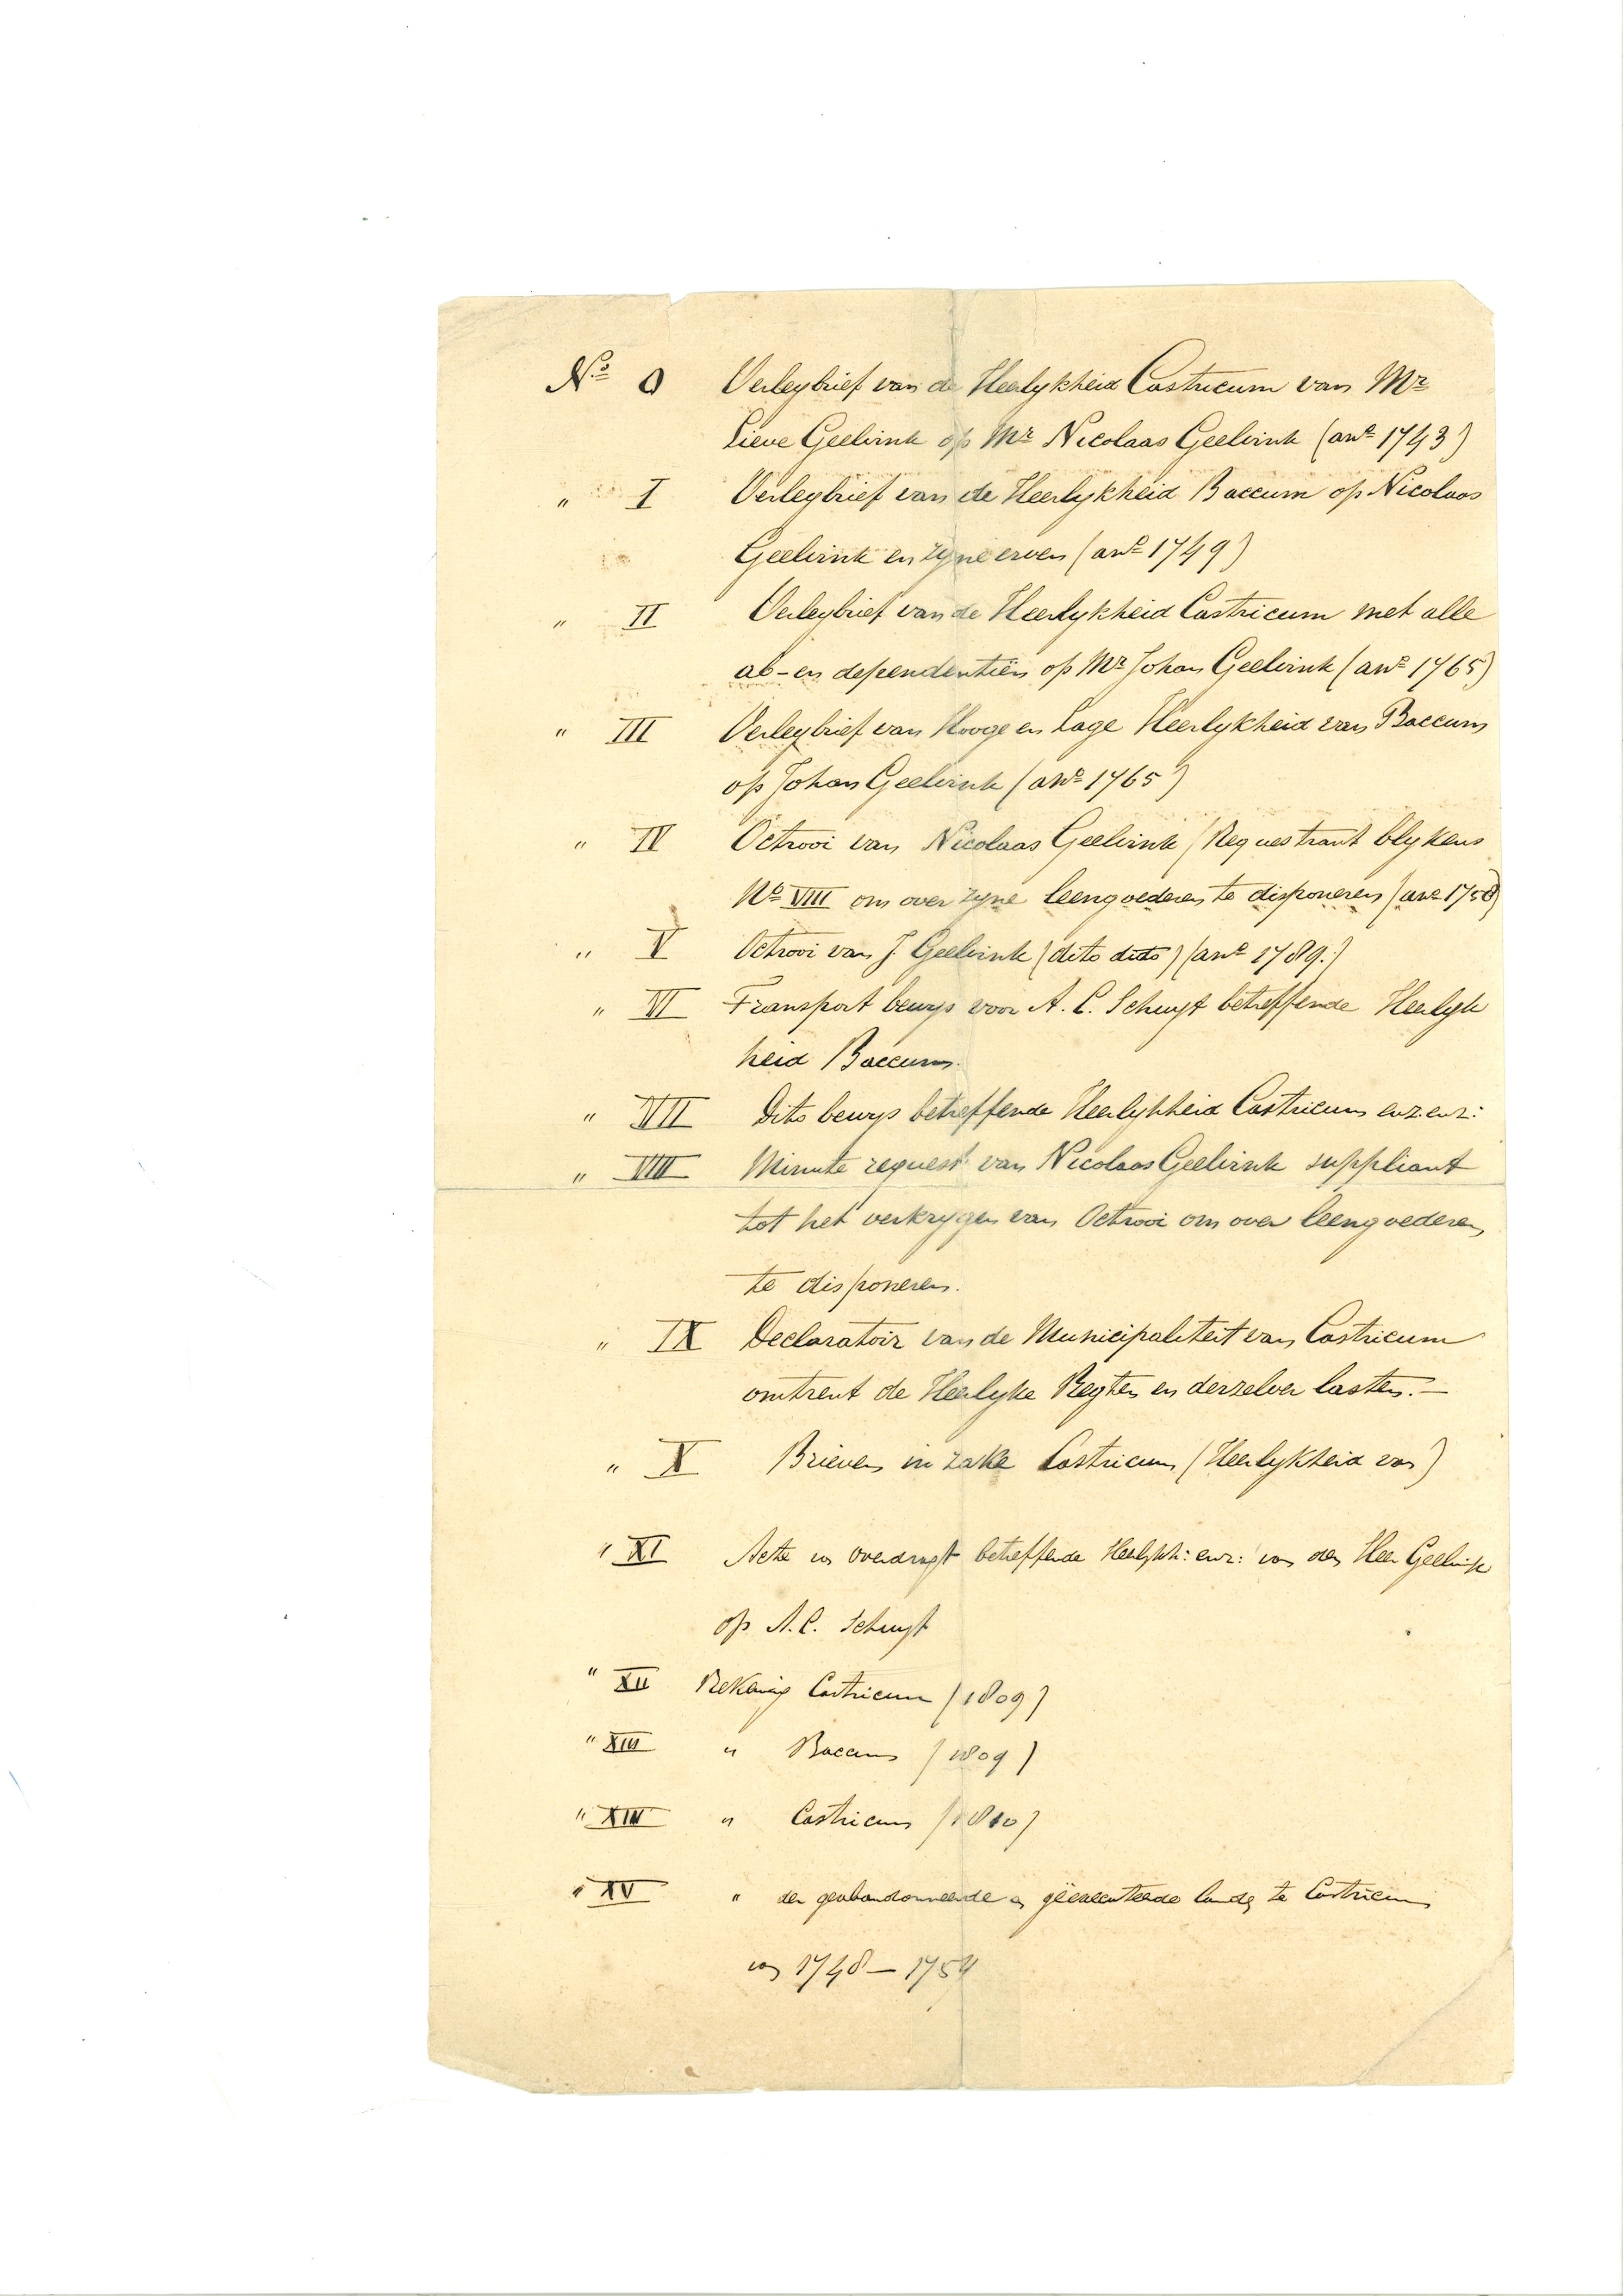 No 0 Verleybrief van de Heerlykheid Castricum van Mr
Lieve Geelvink op Mr Nicolaas Geelvink (ano 1743)
" I Verleybrief van de Heerlykheid Baccum op Nicolaas
Geelvink en zyne erven (ano 1749)
" II Verleybrief van de Heerlykheid Castricum met alle
ab- en dependentiën op Mr Johan Geelvink (ano 1765)
" III Verleybrief van Hooge en Lage Heerlykheid van Baccum
op Johan Geelvink (ano 1765)
" IV Octrooi van Nicolaas Geelvink (Requestrant blykens
No VIII om over zyne leengoederen te disponeren (ano 1750)
" V Octrooi van J. Geelvink (dito dito) (ano 1789.)
" VI Transport bewys voor A. C. Schuyt betreffende Heerlyk
heid Baccum.
" VII Dito bewys betreffende Heerlykheid Castricum enz. enz:
" VIII Minute request van Nicolaas Geelvink suppliant
tot het verkrygen van Octrooi om over leengoederen
te disponeren.
" IX Declaratoir van de Municipaliteit van Castricum
omtrent de Heerlyke Regten en derzelver lasten. —
" X Brieven in zake Castricum (Heerlykheid van)
" XI Acte van Overdragt betreffende Heerlykh: enz: van den Heer Geelvink
op A. C. Schuyt
" XII Rekening Castricum (1809)
" XIII " Baccum (1809)
" XIIII " Castricum (1810)
" XV " der geabandonneerde en geëxecuteerde landen te Castricum
van 1748 — 1754